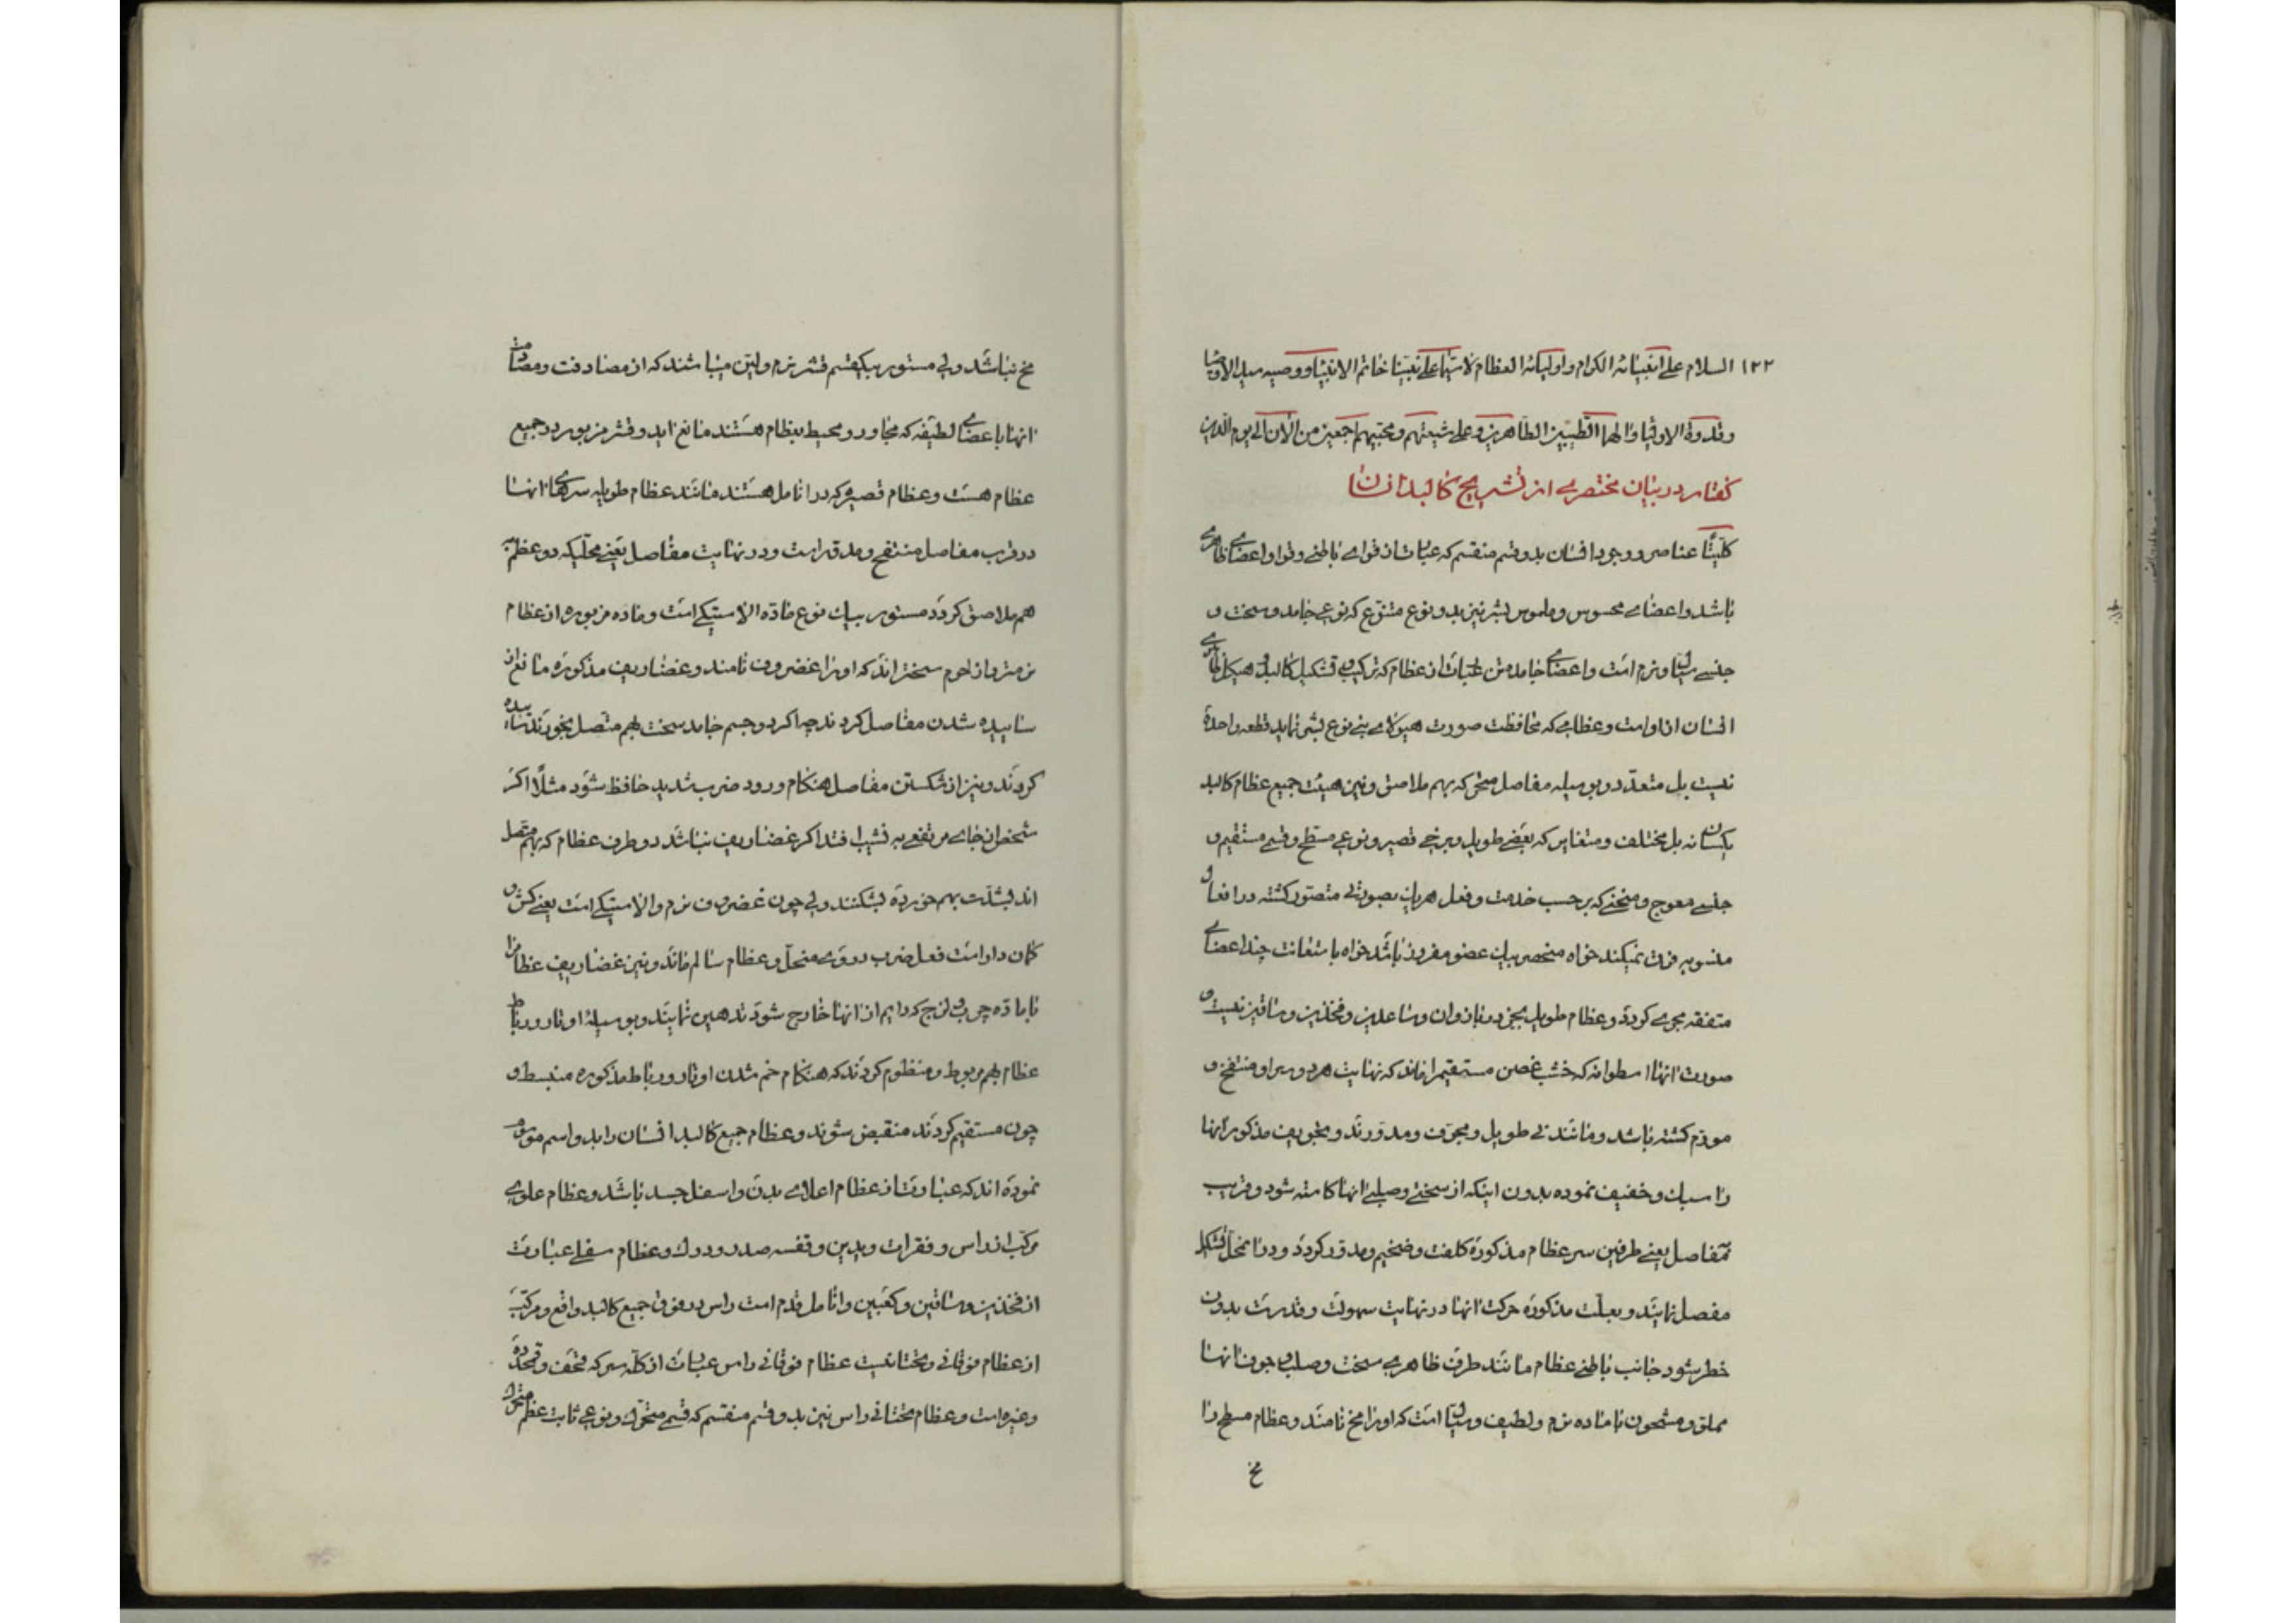 ١٢٢ السلام علی انبیائه الکرام و اولیائه العظام لا سیما علی نبینا خاتم الانبیا و وصیه سید الاوصیا
و قدوة الاوفیا و الهما الطیبین الطاهرین و علی شیعتهم و محبیهم اجمعین من الان الی یوم الدین
کفتار در بیان مختصری از تشریح کالبد انسان
کلیتًا عناصر وجود انسان بدو قسم منقسم که عبارت از قوای باطنی و قوا و اعضای ظاهری
باشد و اعضای محسوس و ملموس بشر نیز بدو نوع متنوع که نوعی جامد و سخت و
جنسی سیال و نرم است و اعضای جامدش عبارت از عظام که ترکیب و تشکیل کالبد و هیکل ظاهری
انسان از او است و عظامی که محافظت صورت هیولای بنی نوع بشر نماید قطعه واحدة
نیست بل متعدد و بوسیله مفاصل متحرکه بهم ملاصق و نیز هیئت جمیع عظام کالبد
یکسان نه بل مختلف و متغایر که بعضی طویل و برخی قصیر و نوعی مسطح و قسمی مستقیم و
جنسی معوج و منحنی که بر حسب خدمت و فعل هر یک بصورتی متصور کشته در افعال
منسوبه فرق نمیکند خواه منحصر بیک عضو مفرد باشد خواه باستعانت چند اعضای
متفقه مجری کردد و عظام طویل بجز در بازوان و ساعدین و فخذین و ساقین نیست و
صورت انها اسطوانه که خشب غصن مستقیم را ماند که نهایت هر دو سر او منتفخ و
مورم کشته باشد و مانند نی طویل و مجوف و مدورند و تجویف مذکور انها
را سبک و خفیف نموده بدون اینکه از سختی و صلبی انها کاسته شود و قریب
بمفاصل یعنی طرفین سر عظام مذکوره کلفت و ضخیم و مدور کردد و در انمحل تشکیل
مفصل نمایند و بعلت مذکوره حرکت انها در نهایت سهولت و قدرت بدون
خطر شود جانب باطنی عظام مانند طرف ظاهری سخت و صلب و جوف انها
مملو و مشحون با ماده نرم و لطیف و سیال است که او را مخ نامند و عظام مسطح را
مخ
مخ نباشد ولی مستور بیکقسم قشر نرم و لین میباشند که از مصادفت و مصادمت
انها با اعضای لطیفه که مجاور و محیط بعظام هستند مانع اید و قشر مزبور در جمیع
عظام هست و عظام قصیره که در انامل هستند مانند عظام طویله سرهای انها
در قرب مفاصل منتفخ و مدور است و در نهایت مفاصل یعنی محلیکه دو عظم به
هم ملاصق کردد مستور بیک نوع ماده الاستیکی است و ماده مزبوره از عظام
نرمتر و از لحوم سختر اند که او را غضروف نامند و غضاریف مذکوره مانع از
سائیده شدن مفاصل کردند چرا کر دو جسم جامد سخت بهم متصل بخورند سائیده
کردند و نیز از شکستن مفاصل هنکام ورود ضرب شدید حافظ شود مثلًا اکر
شخص از جای مرتفعی به نشیب افتد اکر غضاریف نباشد دو طرف عظام که بهم متصل
اند بشدت بهم خورده بشکنند ولی چون غضروف نرم و الاستیکی است یعنی کش و
کمان دار است فعل ضرب در وی منحل و عظام سالم ماند و نیز غضاریف عظام را
با ماده چرب و لزج که دایم از انها خارج شود تدهین نمایند و بوسیله اوتار و رباط
عظام بهم مربوط و منظوم کردند که هنکام خم شدن اوتار و رباط مذکوره منبسط و
چون مستقیم کردند منقبض شوند و عظام جمیع کالبد انسان را بدو اسم موسوم
نموده اند که عبارت از عظام اعلای بدن و اسفل جسد باشد و عظام علوی
مرکب از راس و فقرات و یدین و قفسه صدر و ورک و عظام سفلی عبارت
از فخذین و ساقین و کعبین و انامل قدم است راس در فوق جمیع کالبد واقع و مرکب
از عظام فوقانی و تحتانیست عظام فوقانی راس عبارت از کله سر که قحف و قمحدوه
و غیره است و عظام تحتانی راس نیز بدو قسم منقسم که قسمی متحرک و نوعی ثابت عظم متحرک